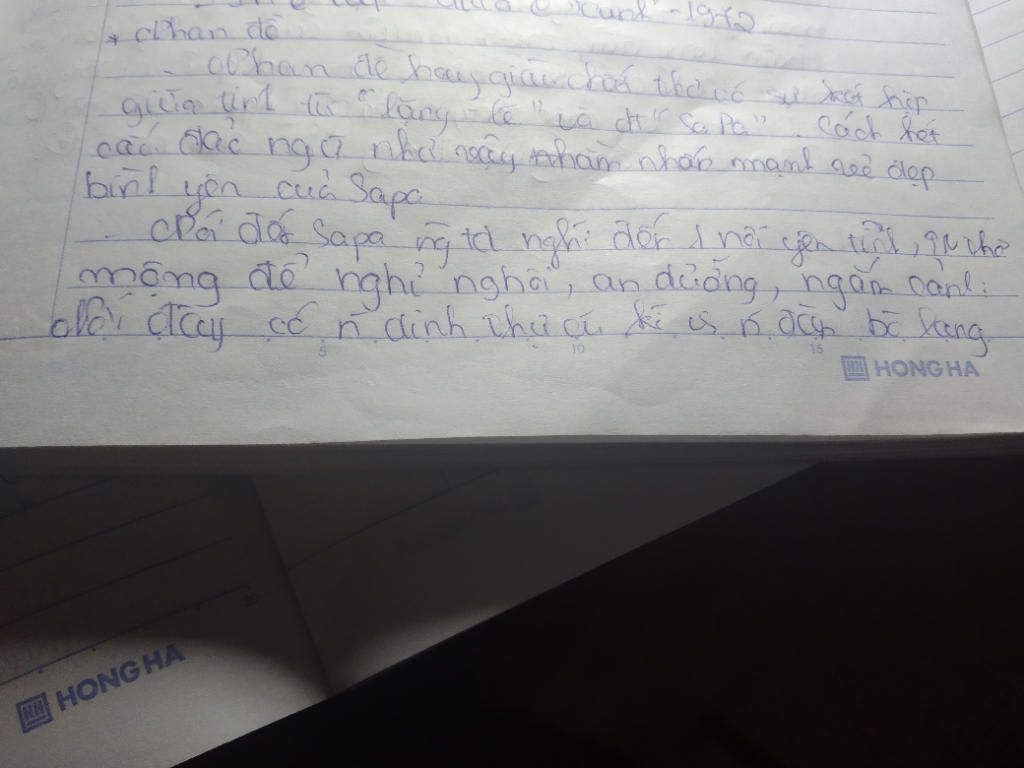 "Giữa trong xanh" - 1972
* Nhan đề
- Nhan đề hay giàu chất thơ có sự kết hợp
giữa tính từ "lặng lẽ" và dt "SaPa". Cách kết
cấu đảo ngữ như vậy nhằm nhấn mạnh vẻ đẹp
bình yên của Sapa
- Nói đến Sapa ng ta nghĩ đến 1 nơi yên tĩnh, thơ
mộng để nghỉ ngơi, an dưỡng, ngắm cảnh.
Nơi đây có n dinh thự cũ kĩ và n đàn bò lang
5 10 15
HONG HA
HONG HA